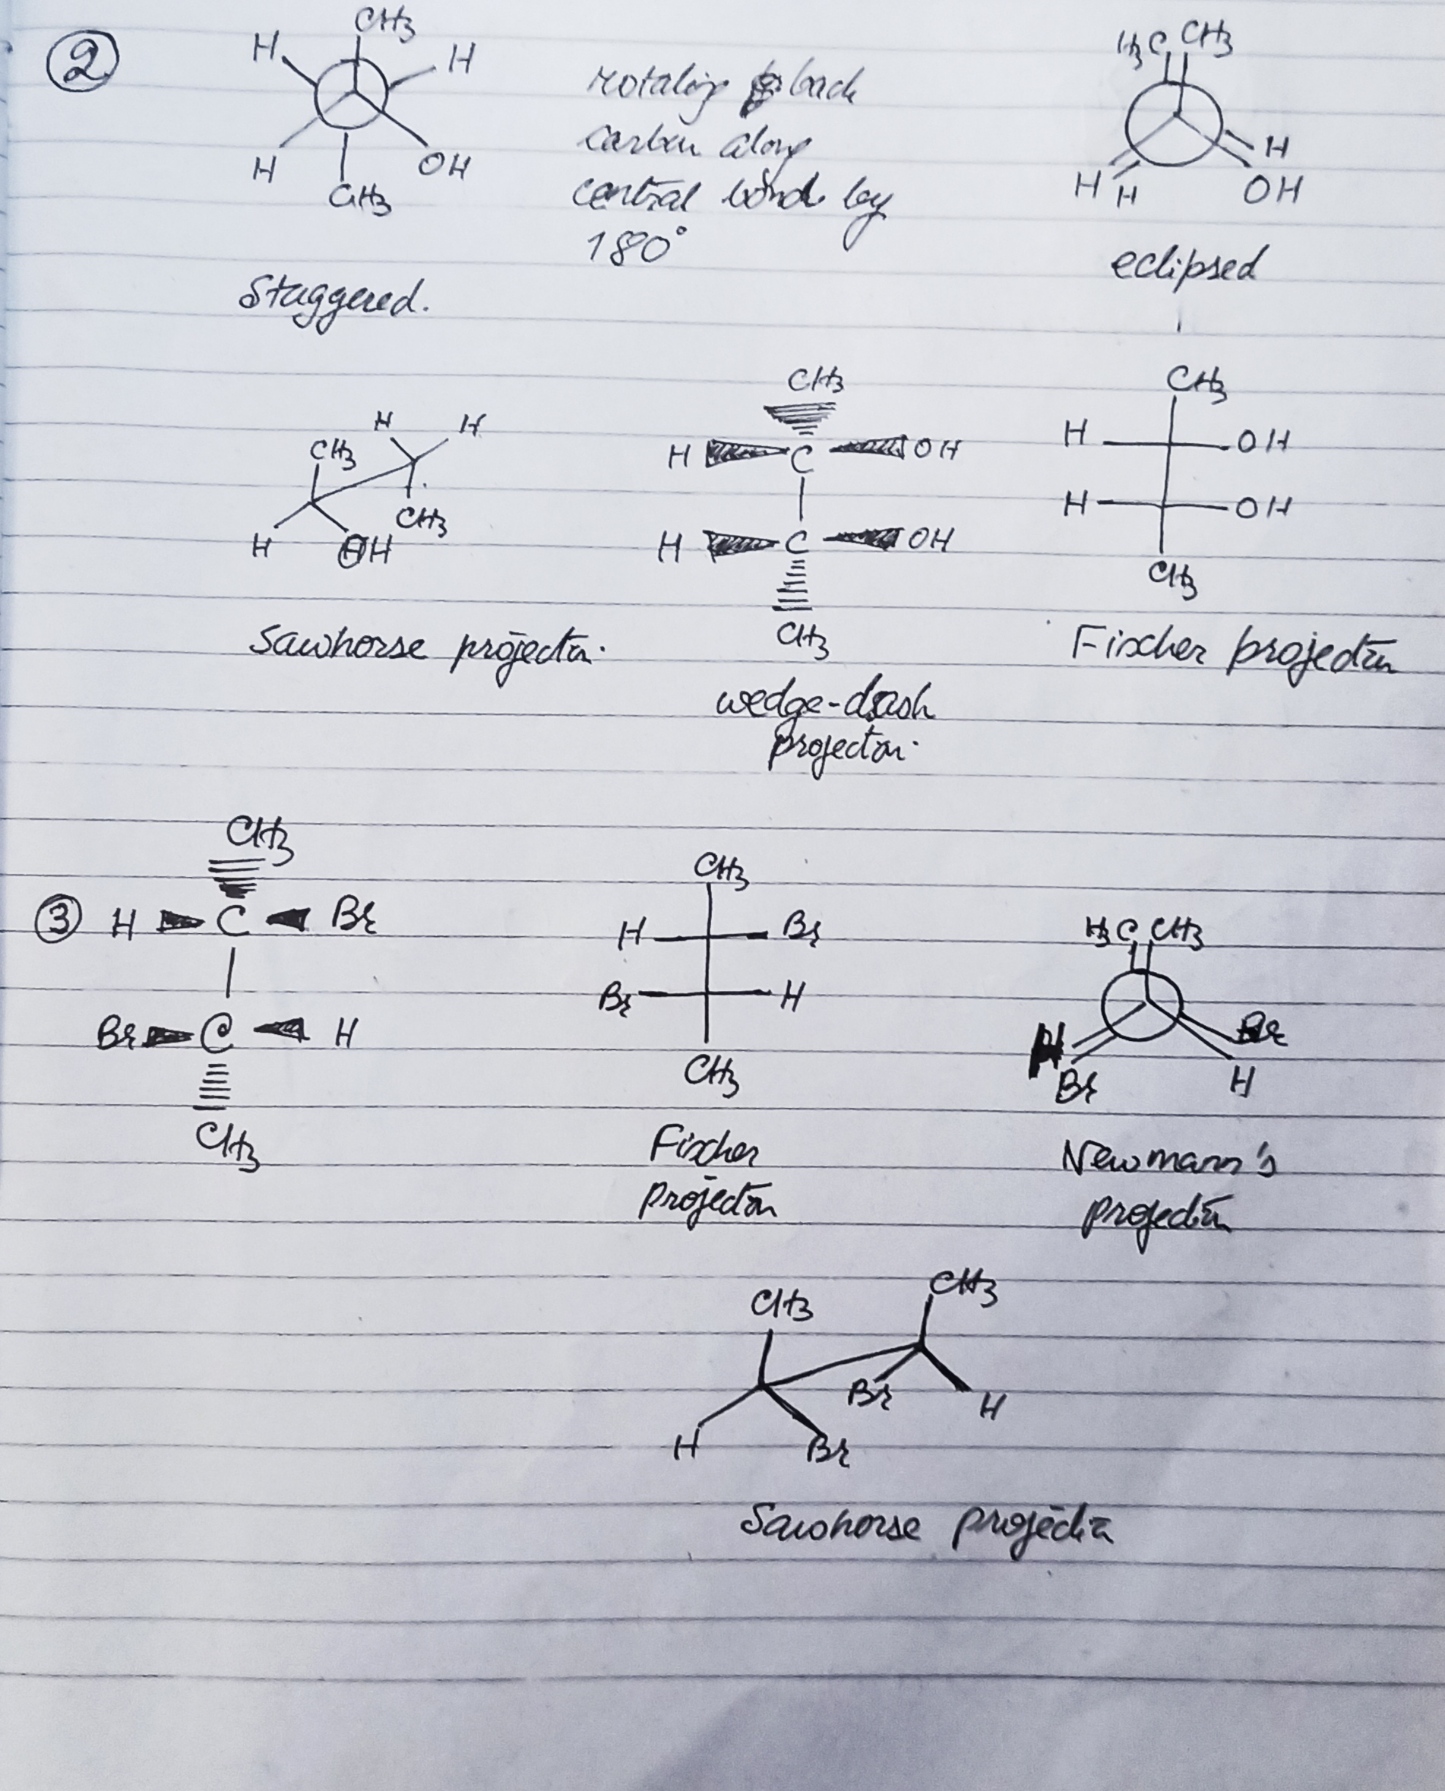 2
CH3
H H
H OH
CH3
Staggered.
rotating back
carbon along
central bond by
180°
H3C CH3
H
H H OH
eclipsed
H H
CH3
CH3
H OH
Sawhorse projectn.
CH3
H C OH
H C OH
CH3
wedge-dash
projecton.
CH3
H OH
H OH
CH3
Fischer projectn
3
CH3
H C Br
Br C H
CH3
CH3
H Br
Br H
CH3
Fischer
projecton
H3C CH3
H Br
Br H
Newmann's
projectn
CH3 CH3
Br H
H Br
Sawhorse projectn